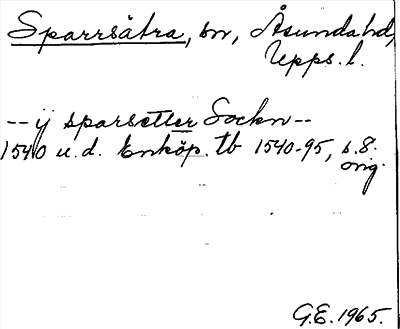 Sparrsätra, sn, Åsundahd,
Upps. l.
-- ij sparsetter Sockn --
1540 u.d. Enköp. tb 1540-95, s. 8.
orig.
G.E. 1965.